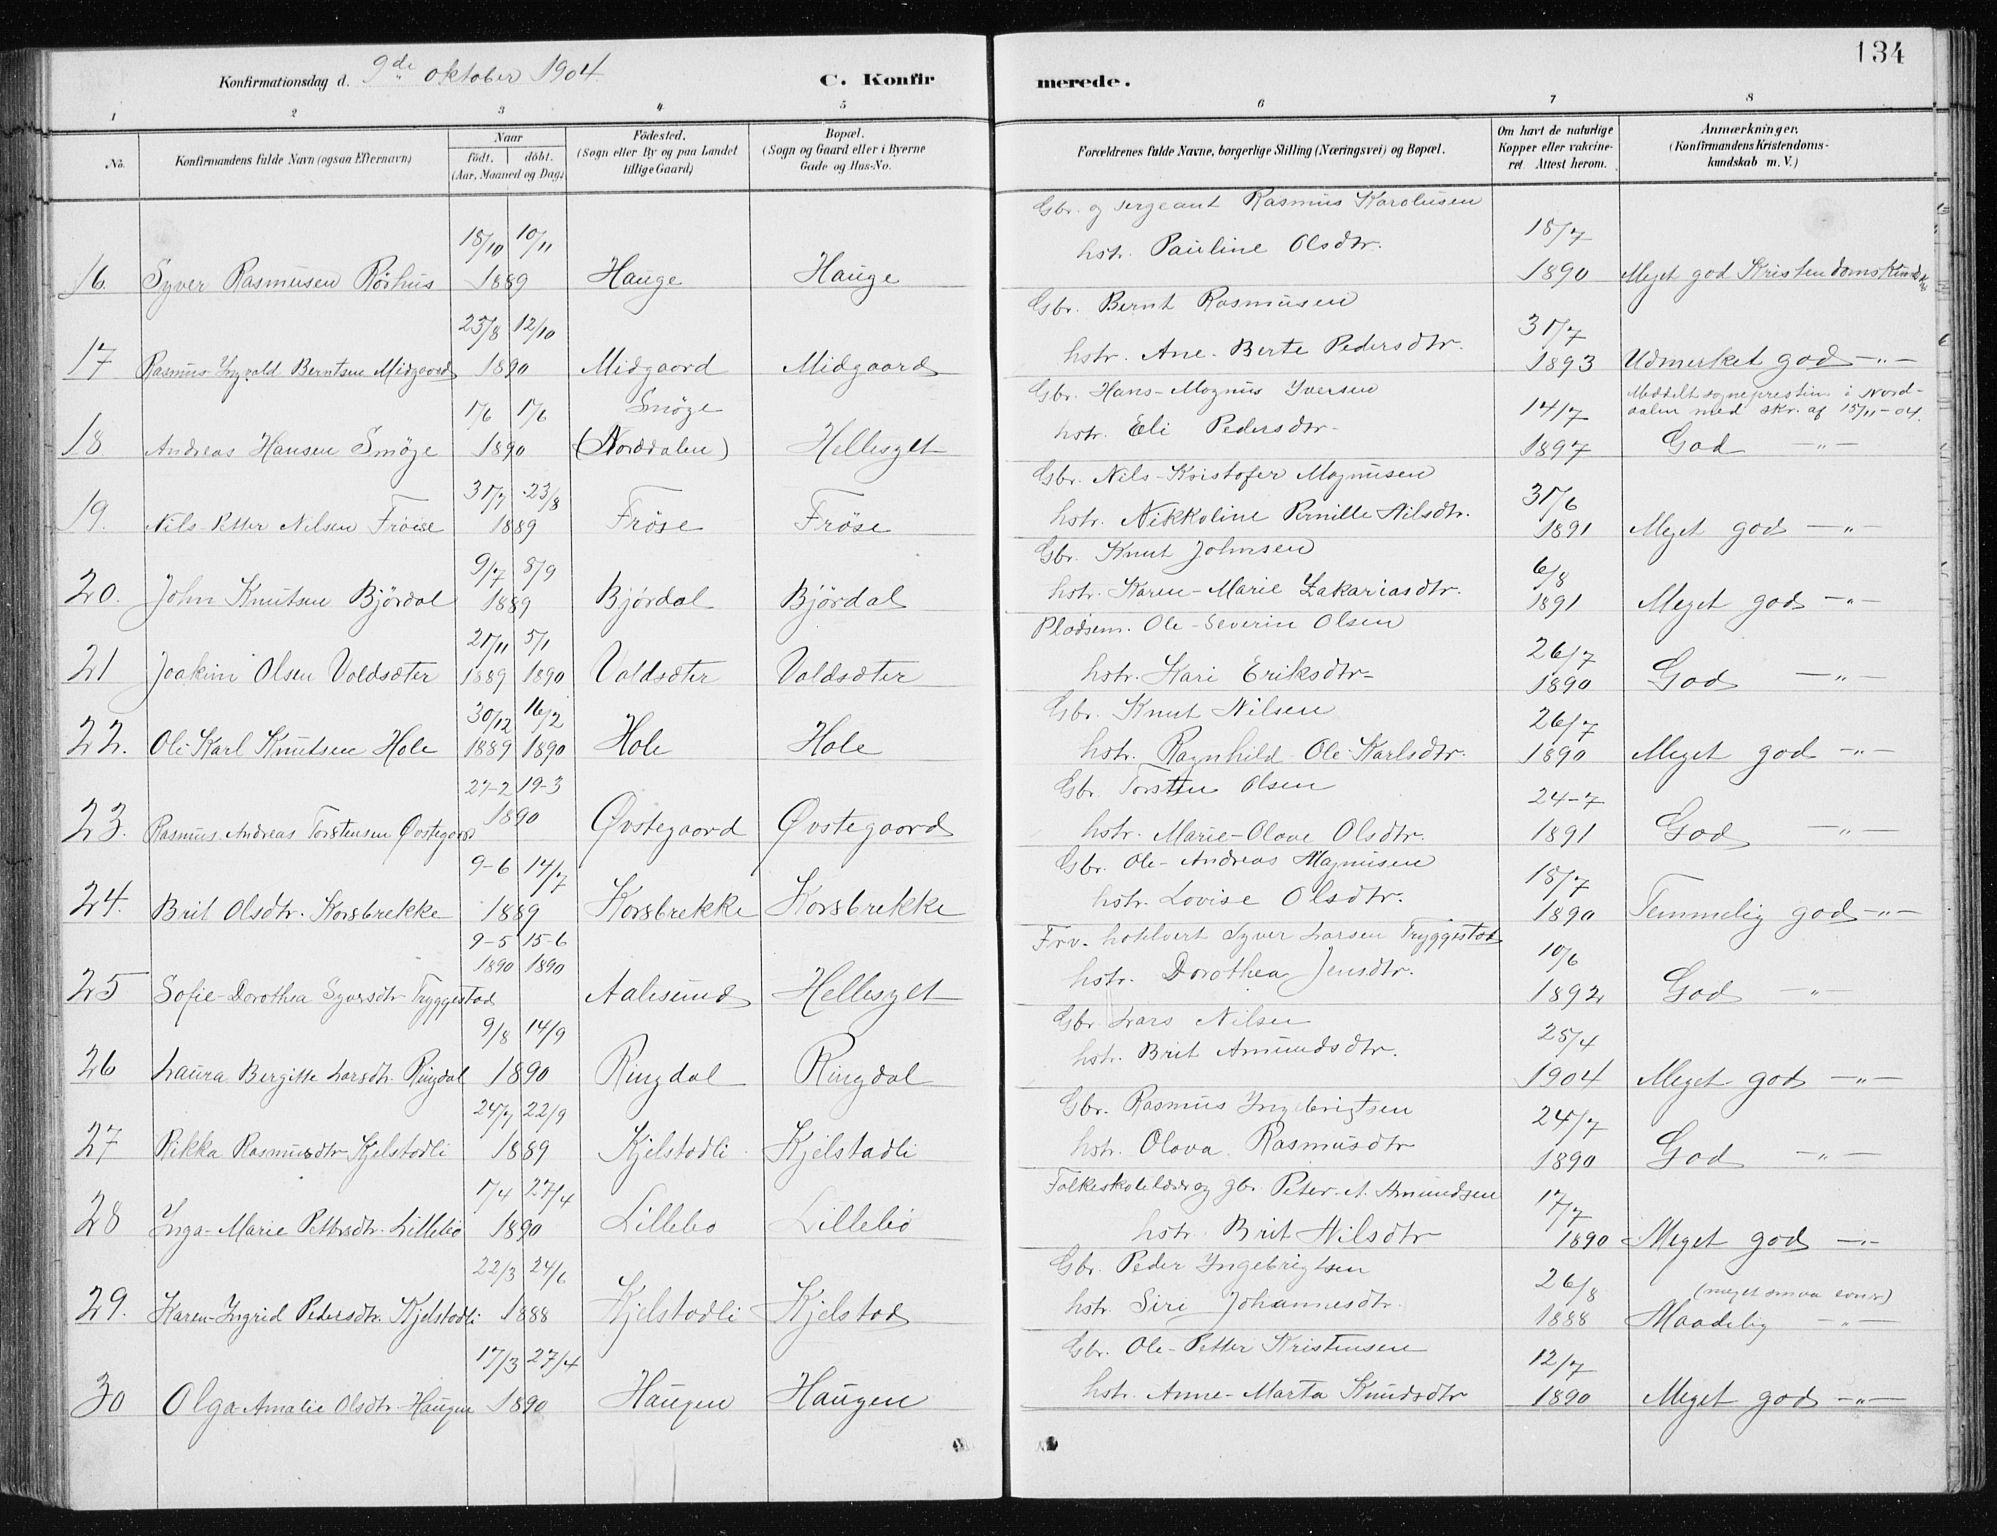 134
Konfirmationsdag d. 9de oktober 1904. C. Konfirmerede.
1 2 3 4 5 6 7 8
No. Konfirmandens fulde Navn (ogsaa Efternavn) Naar födt. döbt. (Aar, Maaned og Dag) Födested. (Sogn eller By og paa Landet tillige Gaard) Bopæl. (Sogn og Gaard eller i Byerne Gade og Hus-No. Forældrenes fulde Navne, borgerlige Stilling (Næringsvei) og Bopæl. Om havt de naturlige Kopper eller vakcineret. Attest herom. Anmærkninger. (Konfirmandens Kristendomskundskab m. V.)
Gbr. og sergeant Rasmus Karolusen
18/10 10/11 hstr. Pauline Olsdtr. 15/7
16. Syver Rasmusen Rörhus 1889 Hauge Hauge 1890 Meget god Kristendomskundsk.
Gbr. Bernt Rasmusen
25/8 12/10 31/7
17 Rasmus Ingvald Berntsen Midgaard 1890 Midgaard Midgaard hstr. Ane-Berte Pedersdtr. 1893 Udmerket god —"—
Gbr. Hans-Magnus Iversen Meddelt sognepresten i Nord-
1/6 1/6 Smöge 14/7 dalen med skr. af 15/11-04.
18 Andreas Hansen Smöge 1890 (Norddalen) Hellesylt hstr. Eli Pedersdtr. 1897 God —"—
Gbr. Nils-Kristofer Magnusen
31/7 23/8 31/6
19. Nils-Petter Nilsen Fröise 1889 Fröse Fröse hstr. Nikkoline Pernille Nilsdtr. 1891 Meget god —"—
Gbr. Knut Johnsen
9/7 8/9 6/8
20. John Knutsen Björdal 1889 Björdal Björdal hstr. Karen-Marie Zakariasdtr. 1891 Meget god —"—
Pladsem. Ole-Severin Olsen
21/11 5/1 26/7
21 Joakim Olsen Voldsæter 1889 1890 Voldsæter Voldsæter hstr. Kari Eriksdtr. 1890 God —"—
Gbr. Knut Nilsen
30/12 16/2 26/7
22. Ole Karl Knutsen Hole 1889 1890 Hole Hole hstr. Ragnhild Ole-Karlsdtr. 1890 Meget god —"—
Gbr. Torsten Olsen
27-2 19-3 24-7
23. Rasmus Andreas Torstensen Øvstegaard 1890 Øvstegaard Øvstegaard hstr. Marie-Olave Olsdtr. 1891 God —"—
Gbr. Ole-Andreas Magnusen
9-6 14/7 15/7
24. Brit Olsdtr. Korsbrekke 1889 Korsbrekke Korsbrekke hstr. Lovise Olsdtr. 1890 Temmelig god —"—
Frv. hotelvert Syver Larsen Tryggestad
9-5 15-6 10/6
1890 1890
25 Sofie-Dorothea Syversdtr Tryggestad Aalesund Hellesylt hstr. Dorothea Jensdtr. 1892 God —"—
Gbr. Lars Nilsen
9/8 14/9 25/4
26 Laura Bergitte Larsdtr. Ringdal 1890 Ringdal Ringdal hstr. Brit Amundsdtr. 1904 Meget god —"—
Gbr. Rasmus Ingebrigtsen
24/7 22/9 24/7
27 Rikka Rasmusdtr Kjelstadli 1889 Kjelstadli Kjelstadli hstr. Olava Rasmusdtr 1890 God —"—
Folkeskolelærer og gbr. Peter A. Amundsen
1/4 27/4 17/7
28 Inga-Marie Pettersdtr. Lillebö 1890 Lillebo Lillebö hstr. Brit Nilsdtr 1890 Meget god —"—
Gbr. Peder Ingebrigtsen
22/3 24/6 26/8 (meget smaa evner)
29. Karen-Ingrid Pedersdtr. Kjelstadli 1888 Kjelstadli Kjelstad hstr. Siri Johannesdtr. 1888 Maadelig —"—
Gbr. Ole-Petter Kristensen
17/3 27/4 12/7
30 Olga Amalie Olsdtr Haugen 1890 Haugen Haugen hstr. Anne-Marta Knudsdtr 1890 Meget god —"—